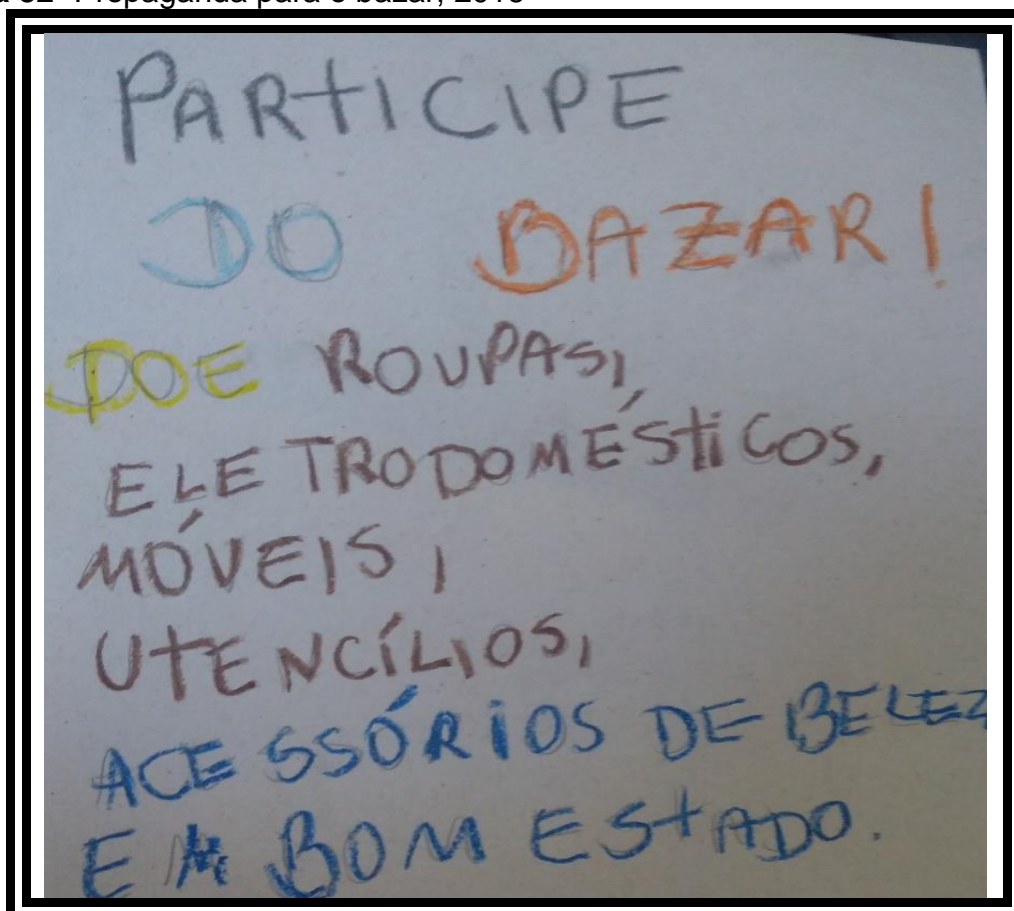 Propaganda para o bazar, 2018
PARTICIPE
DO BAZAR!
DOE ROUPAS,
ELETRODOMÉSTICOS,
MÓVEIS,
UTENCÍLIOS,
ACESSÓRIOS DE BELEZ
EM BOM ESTADO.